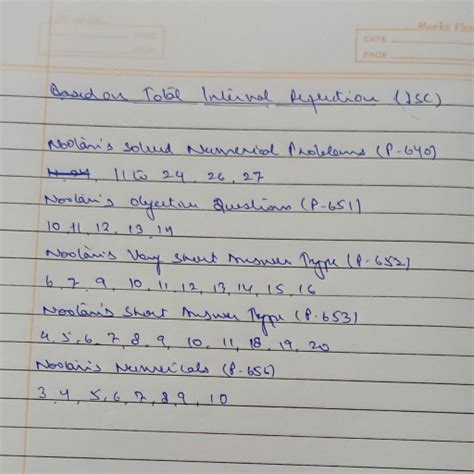 Marks Plus
DATE
PAGE
Based on Total Internal Reflection (ISC)
Nootan's Solved Numerical Problems (P-640)
11 to 24, 26, 27
Nootan's Objective Questions (P-651)
10, 11, 12, 13, 14
Nootan's Very Short Answer Type (P-652)
6, 7, 9, 10, 11, 12, 13, 14, 15, 16
Nootan's Short Answer Type (P-653)
4, 5, 6, 7, 8, 9, 10, 11, 18, 19, 20
Nootan's Numericals (P-656)
3, 4, 5, 6, 7, 8, 9, 10